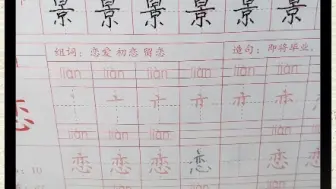 景 景 景 景 景 景
组词：恋爱 初恋 留恋 造句：即将毕业，
liàn liàn liàn liàn liàn liàn liàn
恋
liàn liàn liàn liàn liàn liàn liàn
10 恋 恋 恋 恋 恋 恋